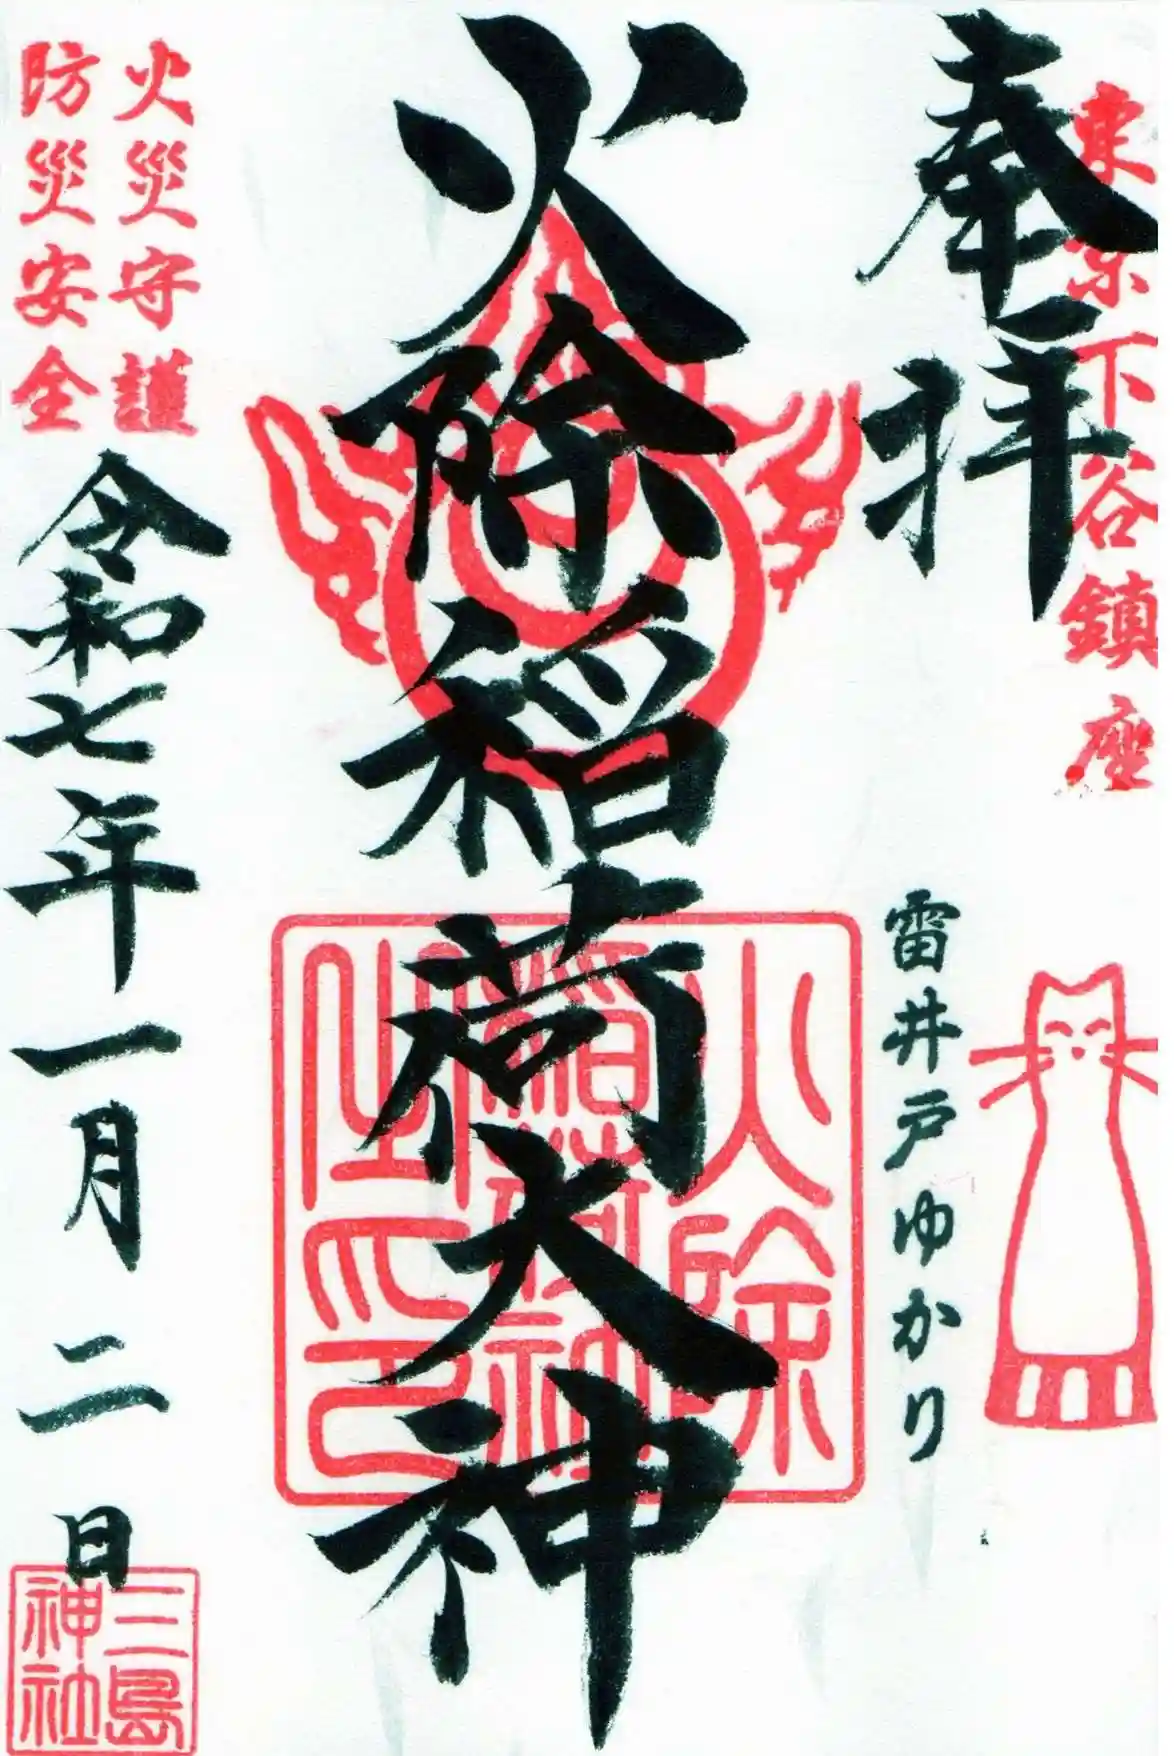 奉拝
東京下谷鎮座
雷井戸ゆかり
火除稲荷大神
火除
稲荷神
之印
火災守護
防災安全
令和七年一月二日
三島
神社